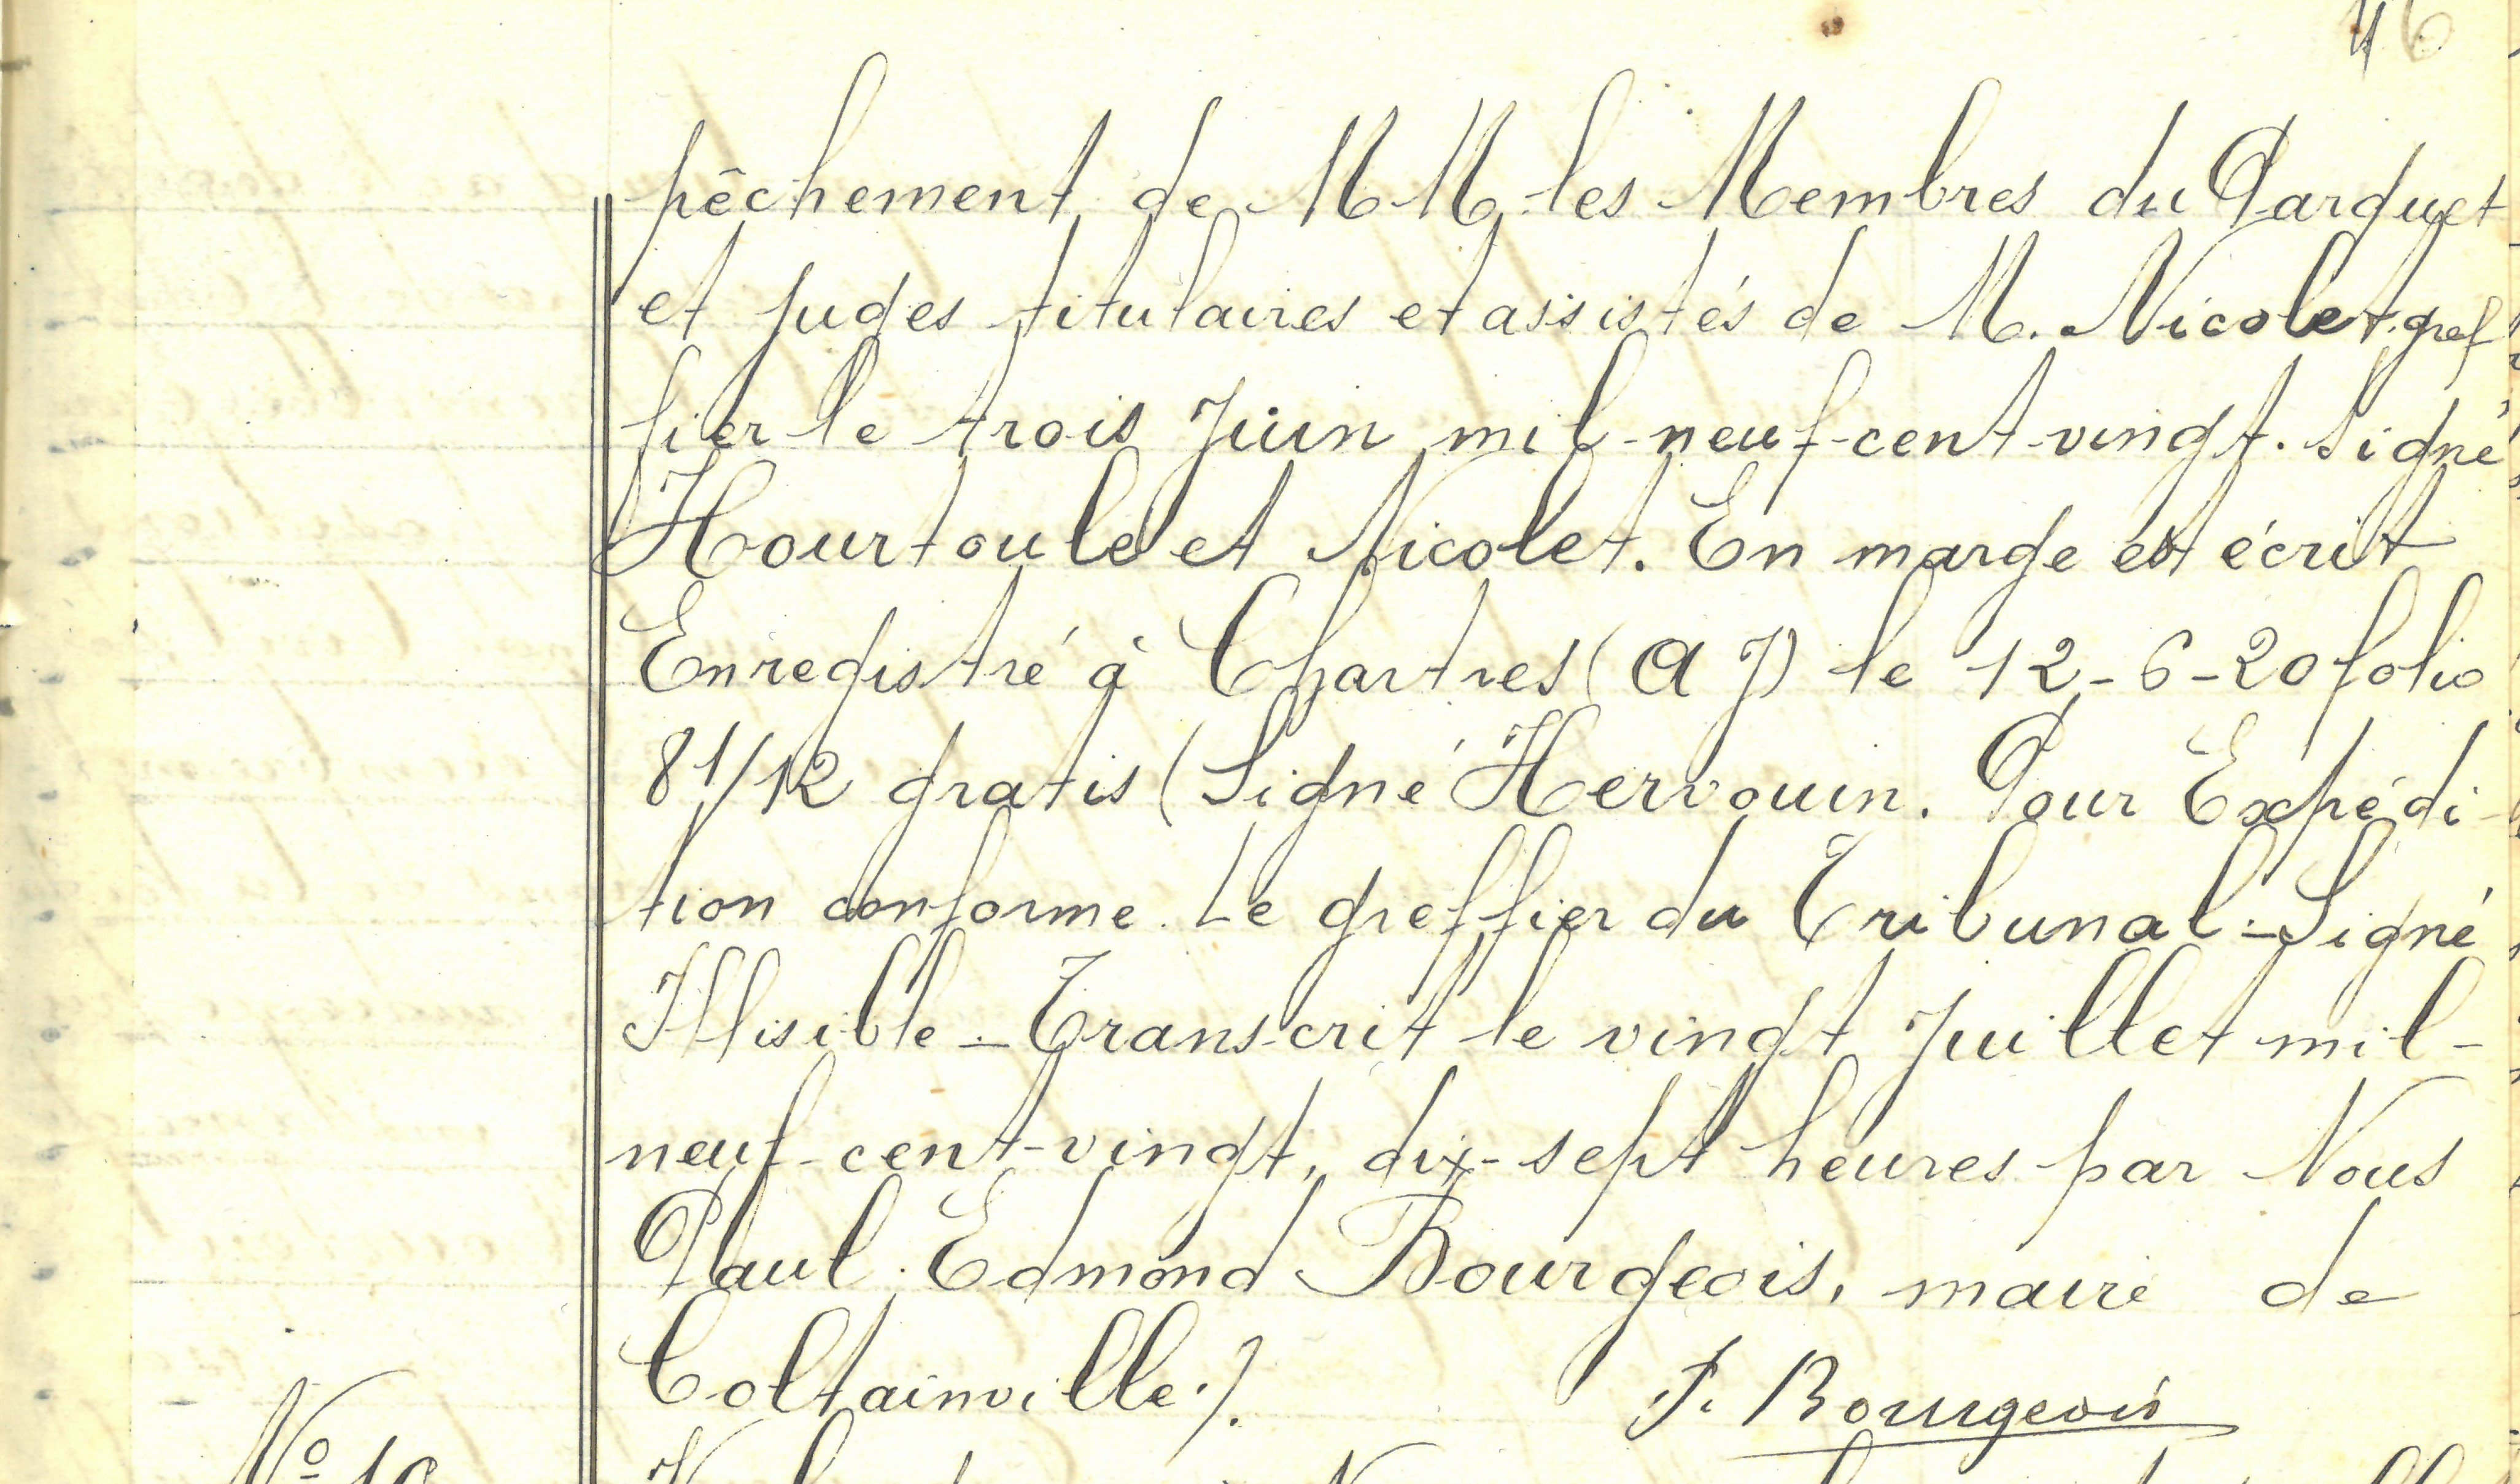 46
pêchement de MM. les Membres du Parquet
et juges titulaires et assistés de M. Nicolet gref
fier le trois Juin mil-neuf-cent-vingt. Signé
Hourtoule et Nicolet. En marge est écrit
Enregistré à Chartres (A J) le 12-6-20 folio
81/12 gratis (Signé Hervouin. Pour Expédi-
tion conforme. Le greffier du Tribunal - Signé
Illisible - Transcrit le vingt Juillet mil-
neuf-cent-vingt, dix-sept heures par Nous
Paul Edmond Bourgeois, maire de
Coltainville./.
P. Bourgeois